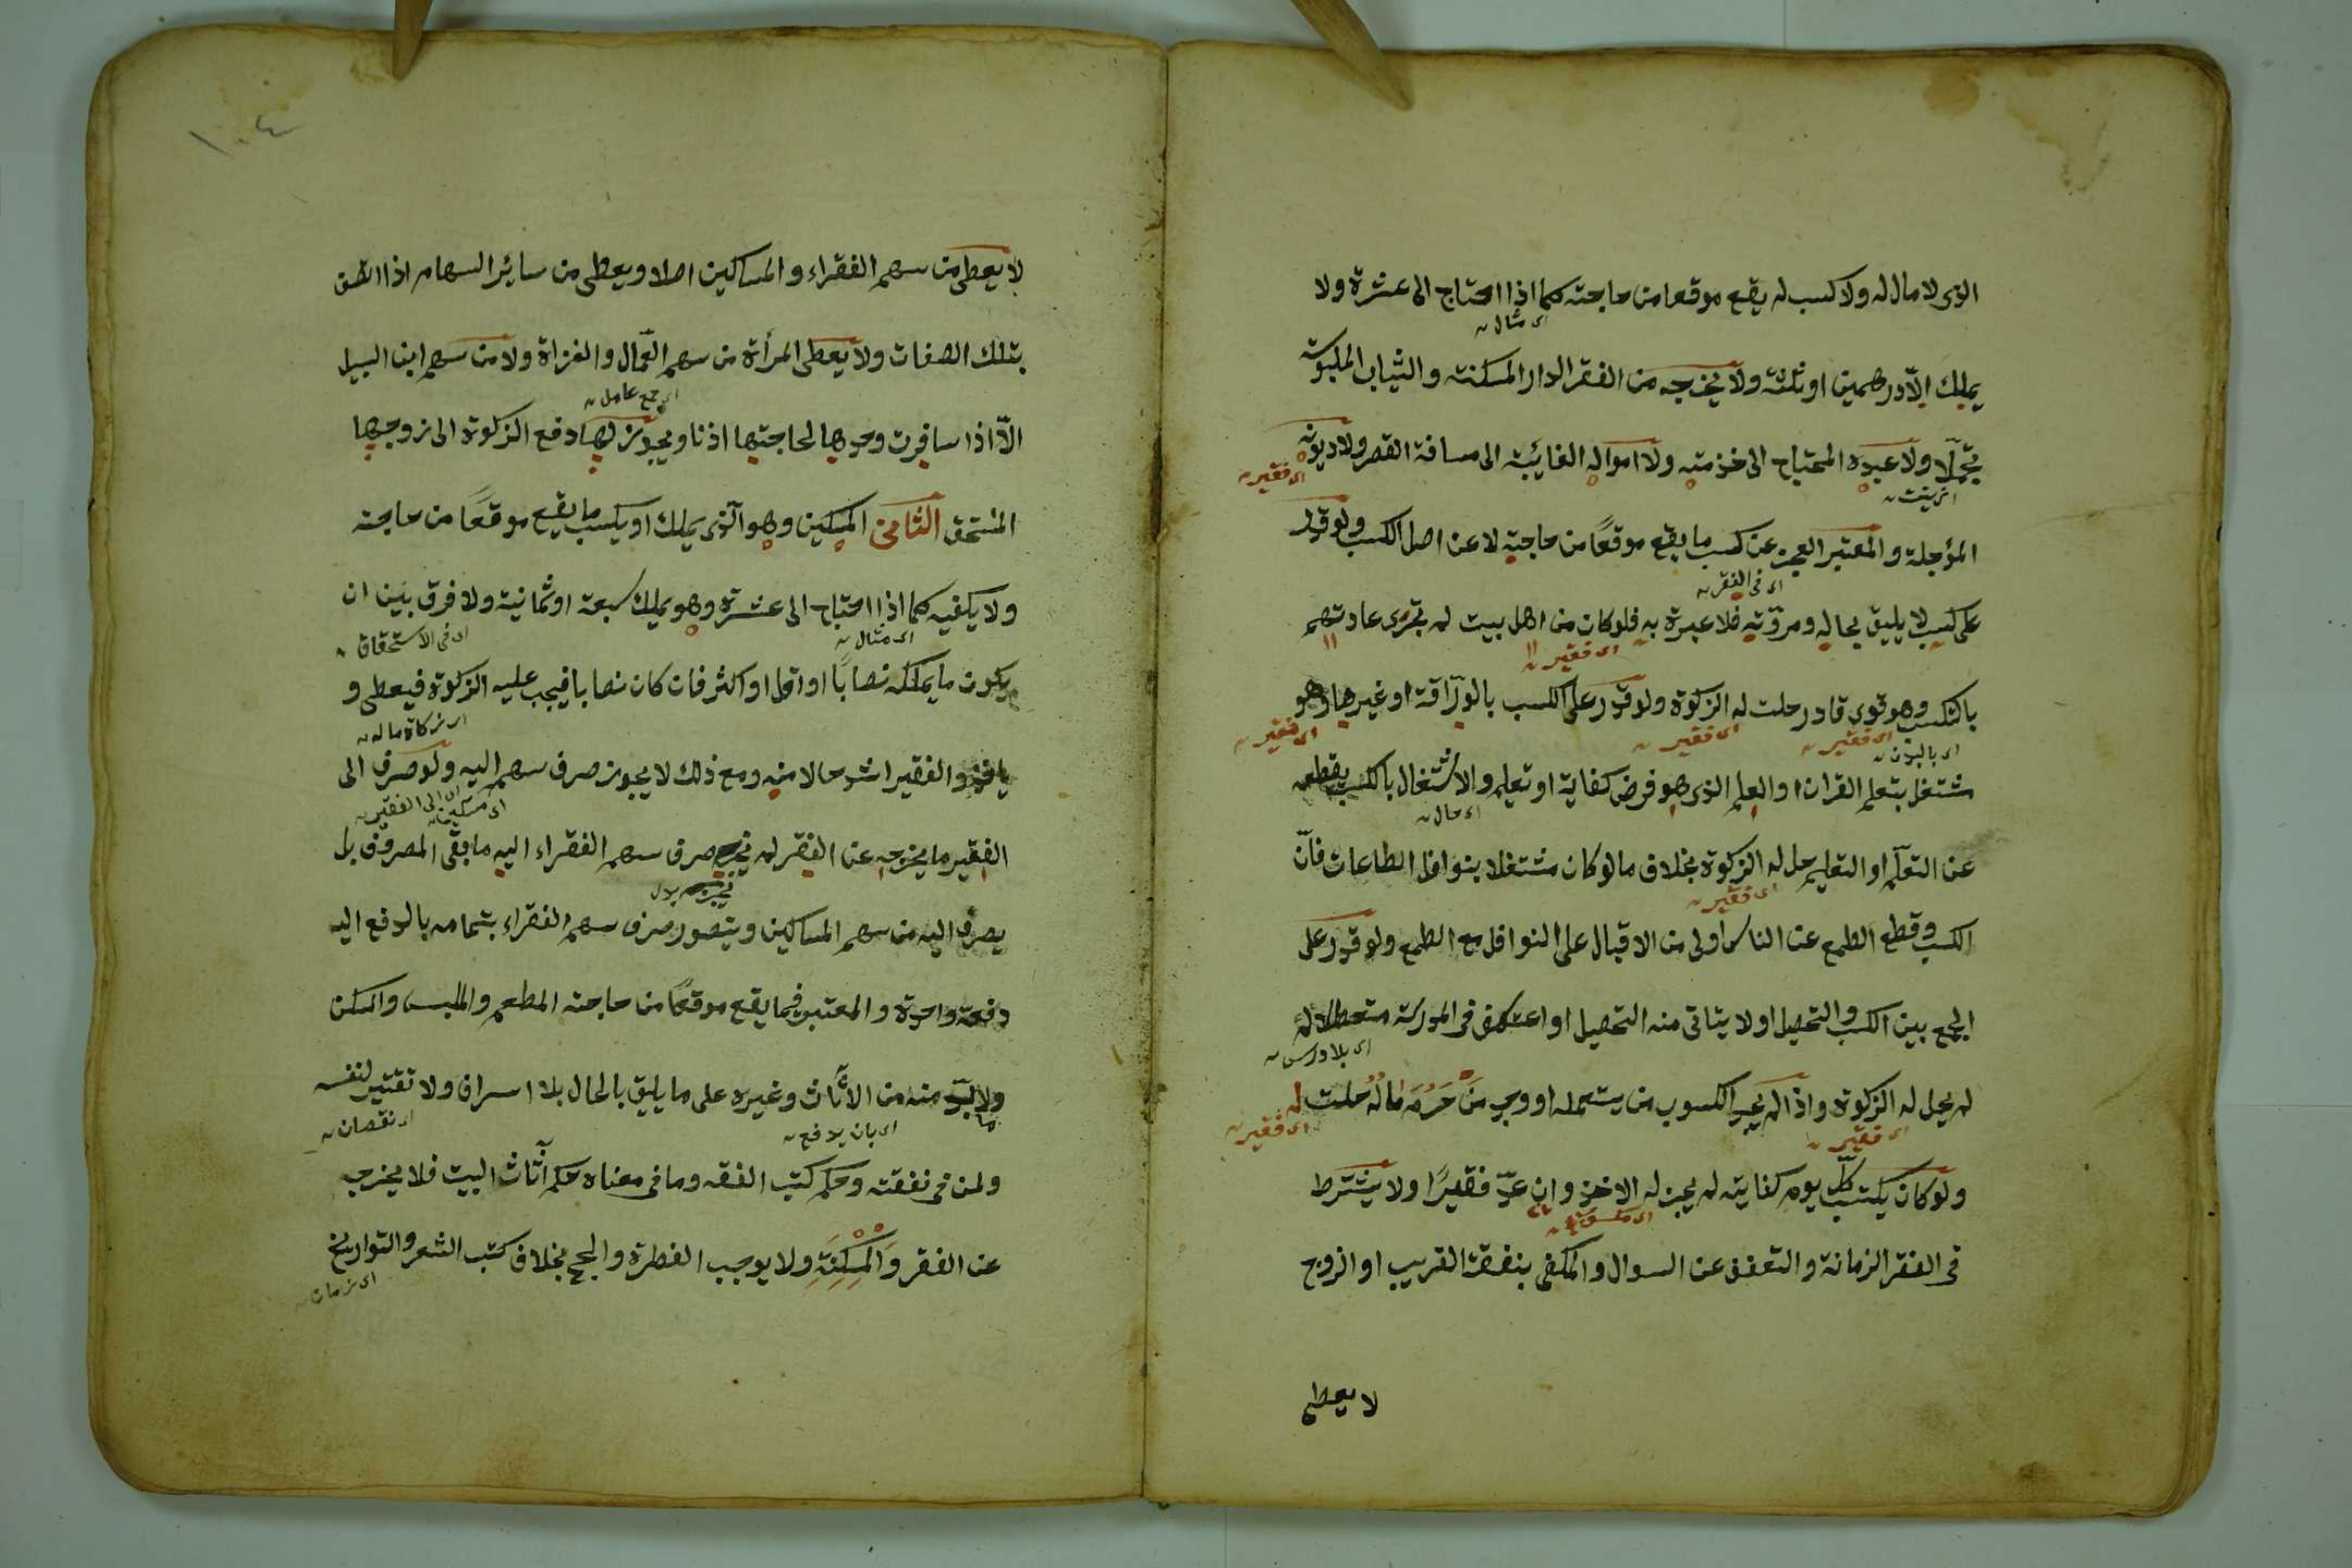 الذى لا مال له ولا كسب له يقع موقعا من حاجته كما اذا احتاج الى عشرة ولا
اى مثال
يملك الّا درهمين او ثلثة ولا يخرجه من الفقر الدار المسكنة والثياب الملبوسة
تجمّلا ولا عبده المحتاج الى خدمته ولا امواله الغائبة الى مسافة القصر ولا ديونه
اى فقير
المؤجلة والمعتبر العجز عن كسب ما يقع موقعًا من حاجته لا عن اصل الكسب ولو قدر
اى فى الفقر
على كسب لا يليق بحاله ومروّته فلا عبرة به فلو كان من اهل بيت لم تجرى عادتهم
اى فقير
بالتكسب وهو قوى قادر حلت له الزكوة ولو قدر على الكسب بالورّاقة او غيرها وهو
اى فقير اى فقير اى فقير
مشتغل بتعلم القران او العلم الذى هو فرض كفاية او تعليم والاشتغال بالكسب يقطعه
اى حال
عن التعلّم او التعليم حل له الزكوة بخلاف ما لو كان مشتغلا بنوافل الطاعات فانّ
اى فقير
الكسب وقطع الطمع عن الناس اولى من الاقبال على النوافل مع الطمع ولو قدر على
الجمع بين الكسب والتحصيل او لا يتاتى منه التحصيل او اعتكف فى المدرسة متعطلا
اى بلا درس
لم يحل له الزكوة واذا لم يجد الكسوب من يستعمله او وجد من حرم ماله حلت له
اى فقير اى فقير
ولو كان يكتسب كلّ يوم كفايته لم يجز له الاخذ وان عدّ فقيرًا ولا يشترط
فى الفقر الزمانة والتعفف عن السوال والمكفى بنفقة القريب او الزوج
لا يعطى
١٠٤
لا يعطى من سهم الفقراء والمساكين اصلا ويعطى من سائر السهام اذا اتصف
بتلك الصفات ولا يعطى المرأة من سهم العمّال والغزاة ولا من سهم ابن السبيل
اى جمع عامل
الّا اذا سافرت وحدها لحاجتها اذنا ويجوز لها دفع الزكوة الى زوجها
المستحق الثامن المسكين وهو الّذى يملك او يكسب ما يقع موقعًا من حاجته
ولا يكفيه كما اذا احتاج الى عشرة وهو يملك سبعة او ثمانية ولا فرق بين ان
اى مثال اى فى الاستحقاق
يكون ما يملكه نصابًا او اقل او اكثر فان كان نصابا فيجب عليه الزكوة فيعطى و
اى زكاة ماله
ياخذ والفقير اشد حالا منه ومع ذلك لا يجوز صرف سهم اليه ولو صرف الى
اى مسكين اى الى الفقير
الفقير ما يخرجه عن الفقر لم يجز صرف سهم الفقراء اليه ما بقى المصروف بل
يصرف اليه من سهم المساكين ويتصور صرف سهم الفقراء بتمامه بالدفع اليه
دفعة واحدة والمعتبر فيما يقع موقعًا من حاجته المطعم والملبس والمسكن
وما لا بدّ منه من الاثاث وغيره على ما يليق بالحال بلا اسراف ولا تقتير لنفسه
اى نقصان
ولمن فى نفقته وحكم كتب الفقه وما فى معناه حكم اثاث البيت فلا يخرجه
عن الفقر والمسكنة ولا يوجب الفطرة والحج بخلاف كتب الشعر والتواريخ
اى زمان